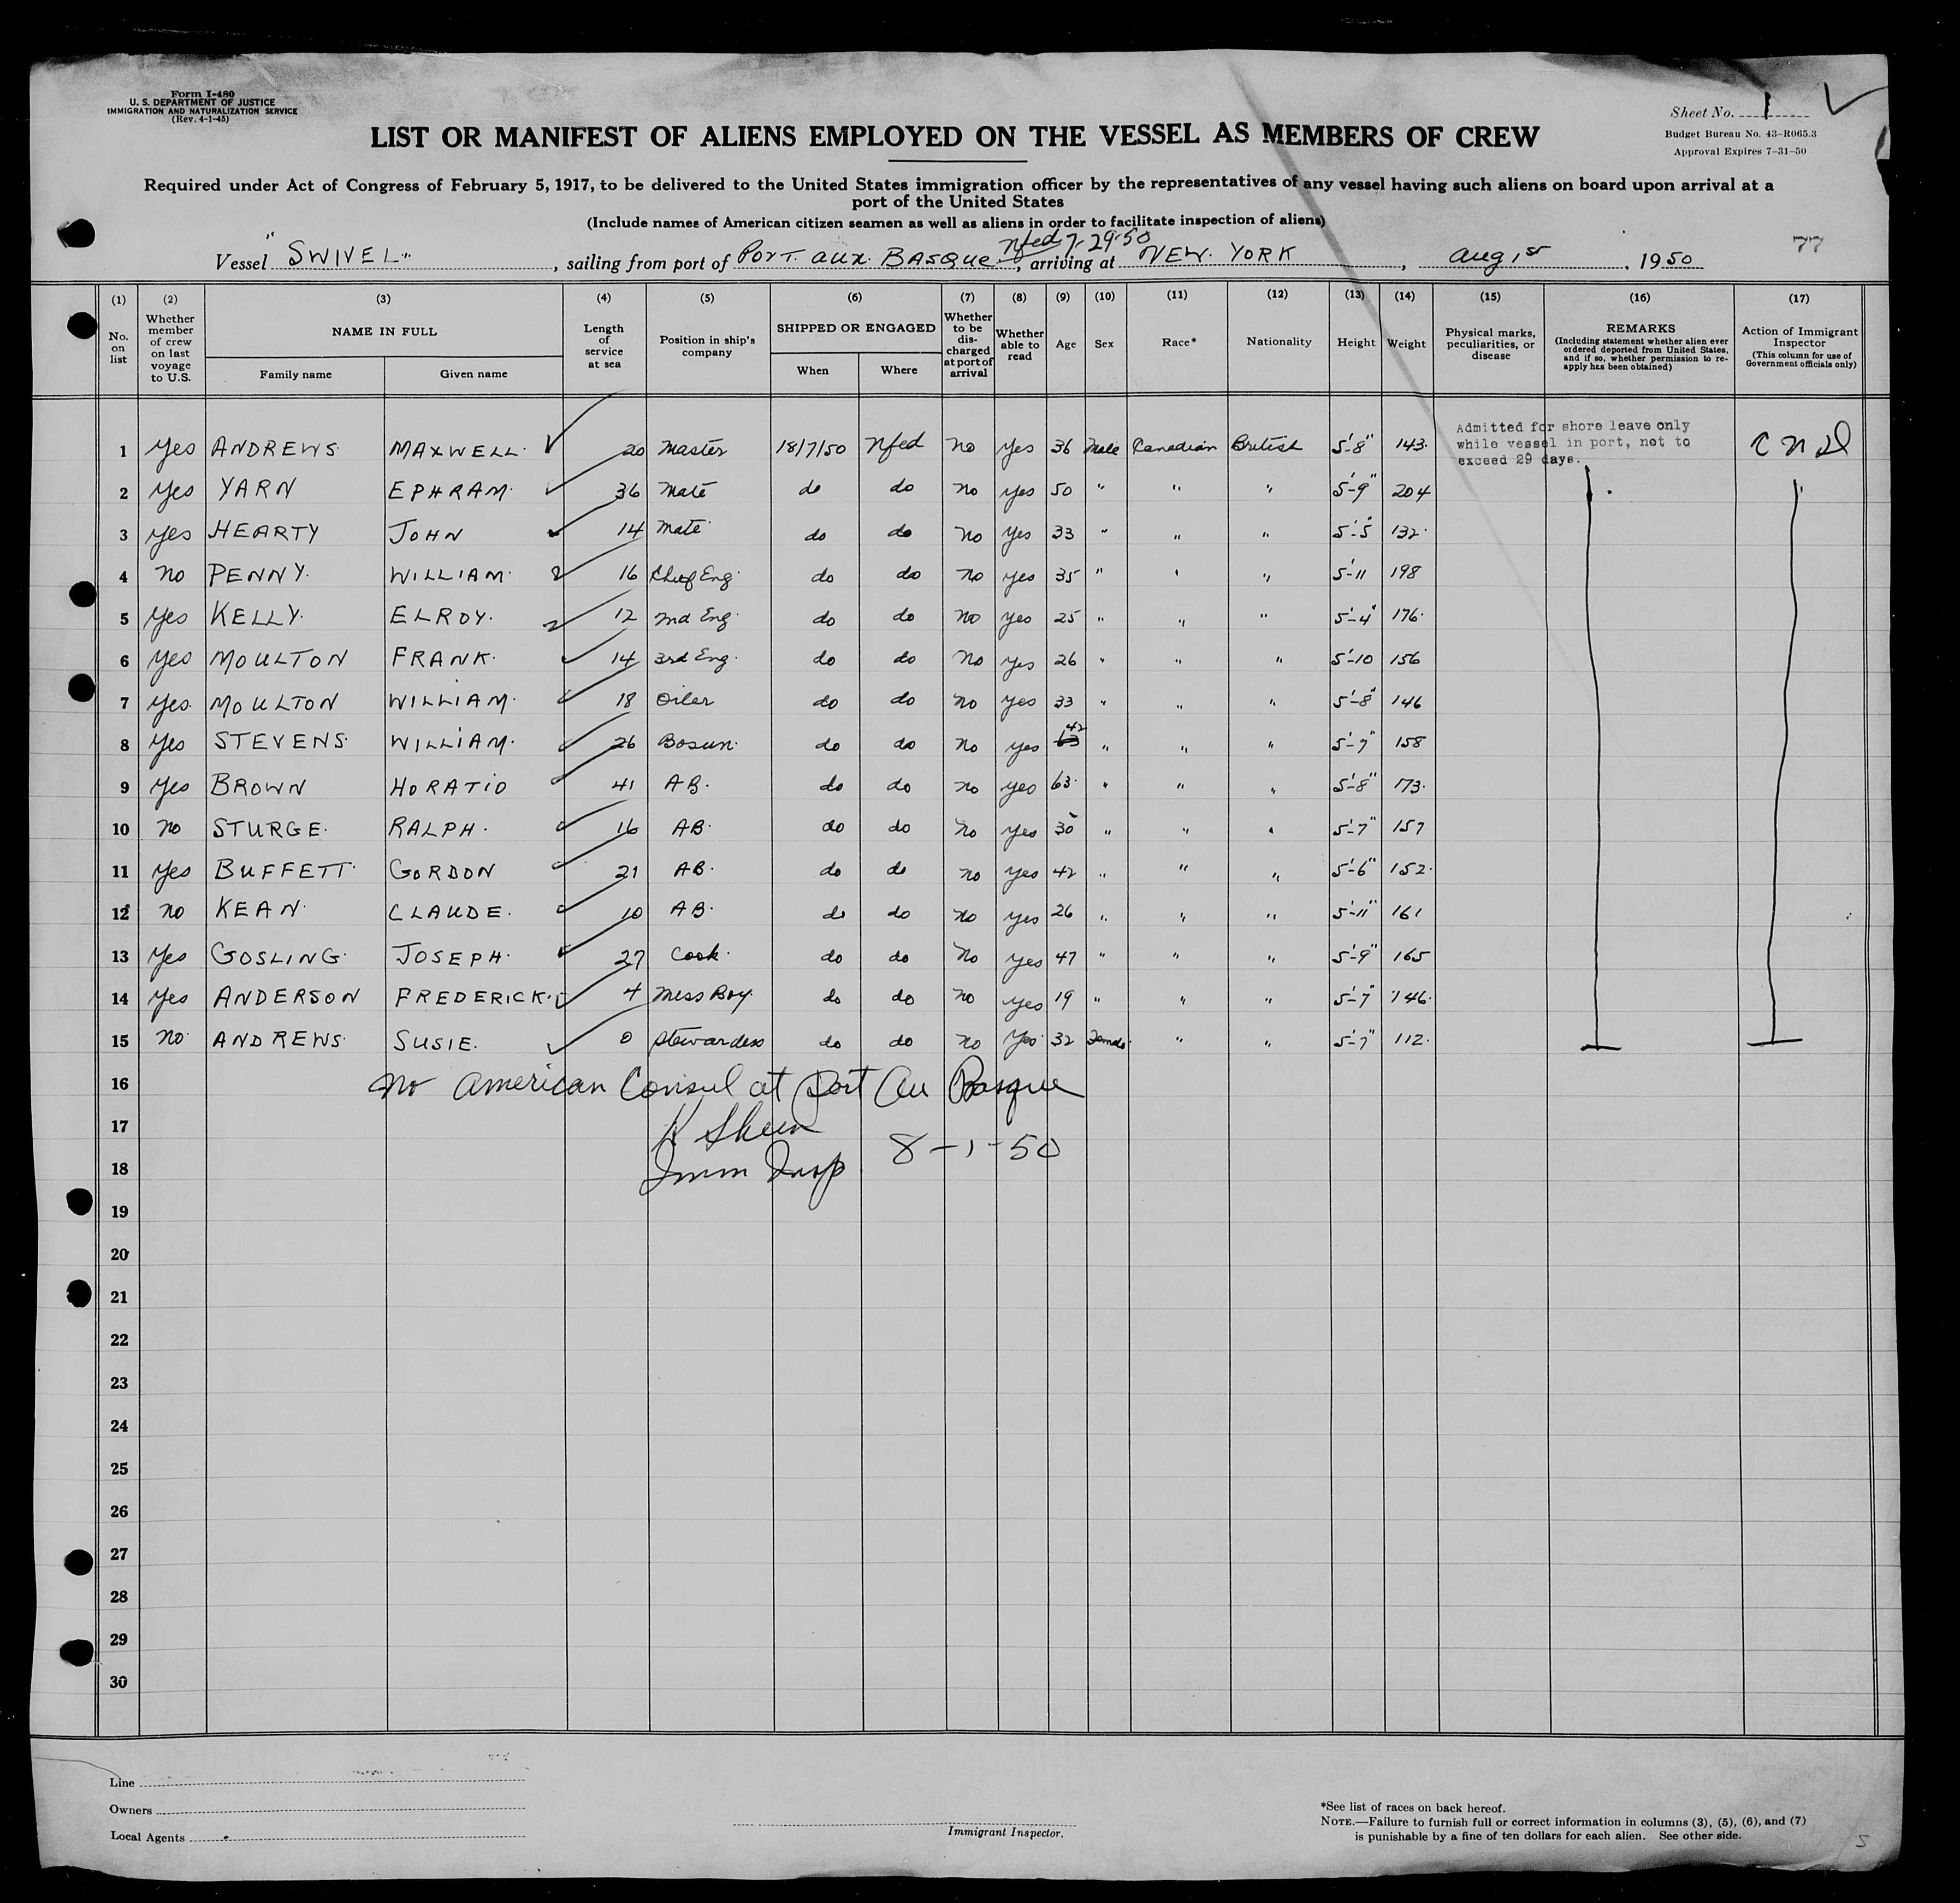 Form I-480
U. S. DEPARTMENT OF JUSTICE
IMMIGRATION AND NATURALIZATION SERVICE
(Rev. 4-1-45)
Sheet No. 1
Budget Bureau No. 43-R065.3
Approval Expires 7-31-50
LIST OR MANIFEST OF ALIENS EMPLOYED ON THE VESSEL AS MEMBERS OF CREW
Required under Act of Congress of February 5, 1917, to be delivered to the United States immigration officer by the representatives of any vessel having such aliens on board upon arrival at a
port of the United States
(Include names of American citizen seamen as well as aliens in order to facilitate inspection of aliens)
Nfed 7-29-50
77
Vessel "SWIVEL", sailing from port of PORT. AUX. BASQUE, arriving at NEW. YORK, Aug 1st, 1950
(1) (2) (3) (4) (5) (6) (7) (8) (9) (10) (11) (12) (13) (14) (15) (16) (17)
No. on list
Whether member of crew on last voyage to U.S.
NAME IN FULL
Family name
Given name
Length of service at sea
Position in ship's company
SHIPPED OR ENGAGED
When
Where
Whether to be discharged at port of arrival
Whether able to read
Age
Sex
Race*
Nationality
Height
Weight
Physical marks, peculiarities, or disease
REMARKS
(Including statement whether alien ever ordered deported from United States, and if so, whether permission to re-apply has been obtained)
Action of Immigrant Inspector
(This column for use of Government officials only)
Admitted for shore leave only
while vessel in port, not to
exceed 29 days.
1 Yes ANDREWS. MAXWELL. 20 Master 18/7/50 Nfed No Yes 36 Male Canadian British 5'-8" 143.
2 Yes YARN EPHRAM. 36 Mate do do No Yes 50 " " " 5'-9" 204
3 Yes HEARTY JOHN 14 Mate do do No Yes 33 " " " 5'-5" 132.
4 No PENNY. WILLIAM. 16 Chief Eng. do do No Yes 35 " " " 5'-11 198
5 Yes KELLY. ELROY. 12 2nd Eng. do do No Yes 25 " " " 5'-4" 176.
6 Yes MOULTON FRANK. 14 3rd Eng. do do No Yes 26 " " " 5'-10 156
7 Yes. MOULTON WILLIAM. 18 Oiler do do No Yes 33 " " " 5'-8" 146
8 Yes STEVENS. WILLIAM. 26 Bosun. do do No Yes 63 42 " " " 5'-7" 158
9 Yes BROWN HORATIO 41 AB. do do No Yes 63. " " " 5'-8" 173.
10 No STURGE. RALPH. 16 AB. do do No Yes 30 " " " 5'-7" 157
11 Yes BUFFETT. GORDON 21 AB. do do No Yes 42 " " " 5'-6" 152.
12 No KEAN. CLAUDE. 10 AB. do do No Yes 26 " " " 5'-11" 161
13 Yes GOSLING. JOSEPH. 27 Cook. do do No Yes 47 " " " 5'-9" 165
14 Yes ANDERSON FREDERICK. 4 Mess Boy. do do No Yes 19 " " " 5'-7" 146.
15 No. ANDREWS. SUSIE. 0 Stewardess do do No Yes. 32 Female. " " 5'-7" 112.
16 No American Consul at Port Au Basque
17
18 Imm Insp 8-1-50
19
20
21
22
23
24
25
26
27
28
29
30
Line
Owners
Local Agents
Immigrant Inspector.
*See list of races on back hereof.
NOTE.—Failure to furnish full or correct information in columns (3), (5), (6), and (7)
is punishable by a fine of ten dollars for each alien. See other side.
5